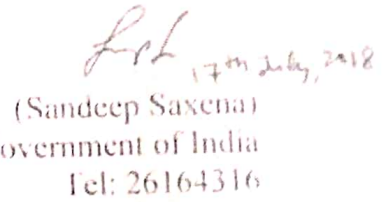 17th July, 2018
(Sandeep Saxena)
overnment of India
Tel: 26164316